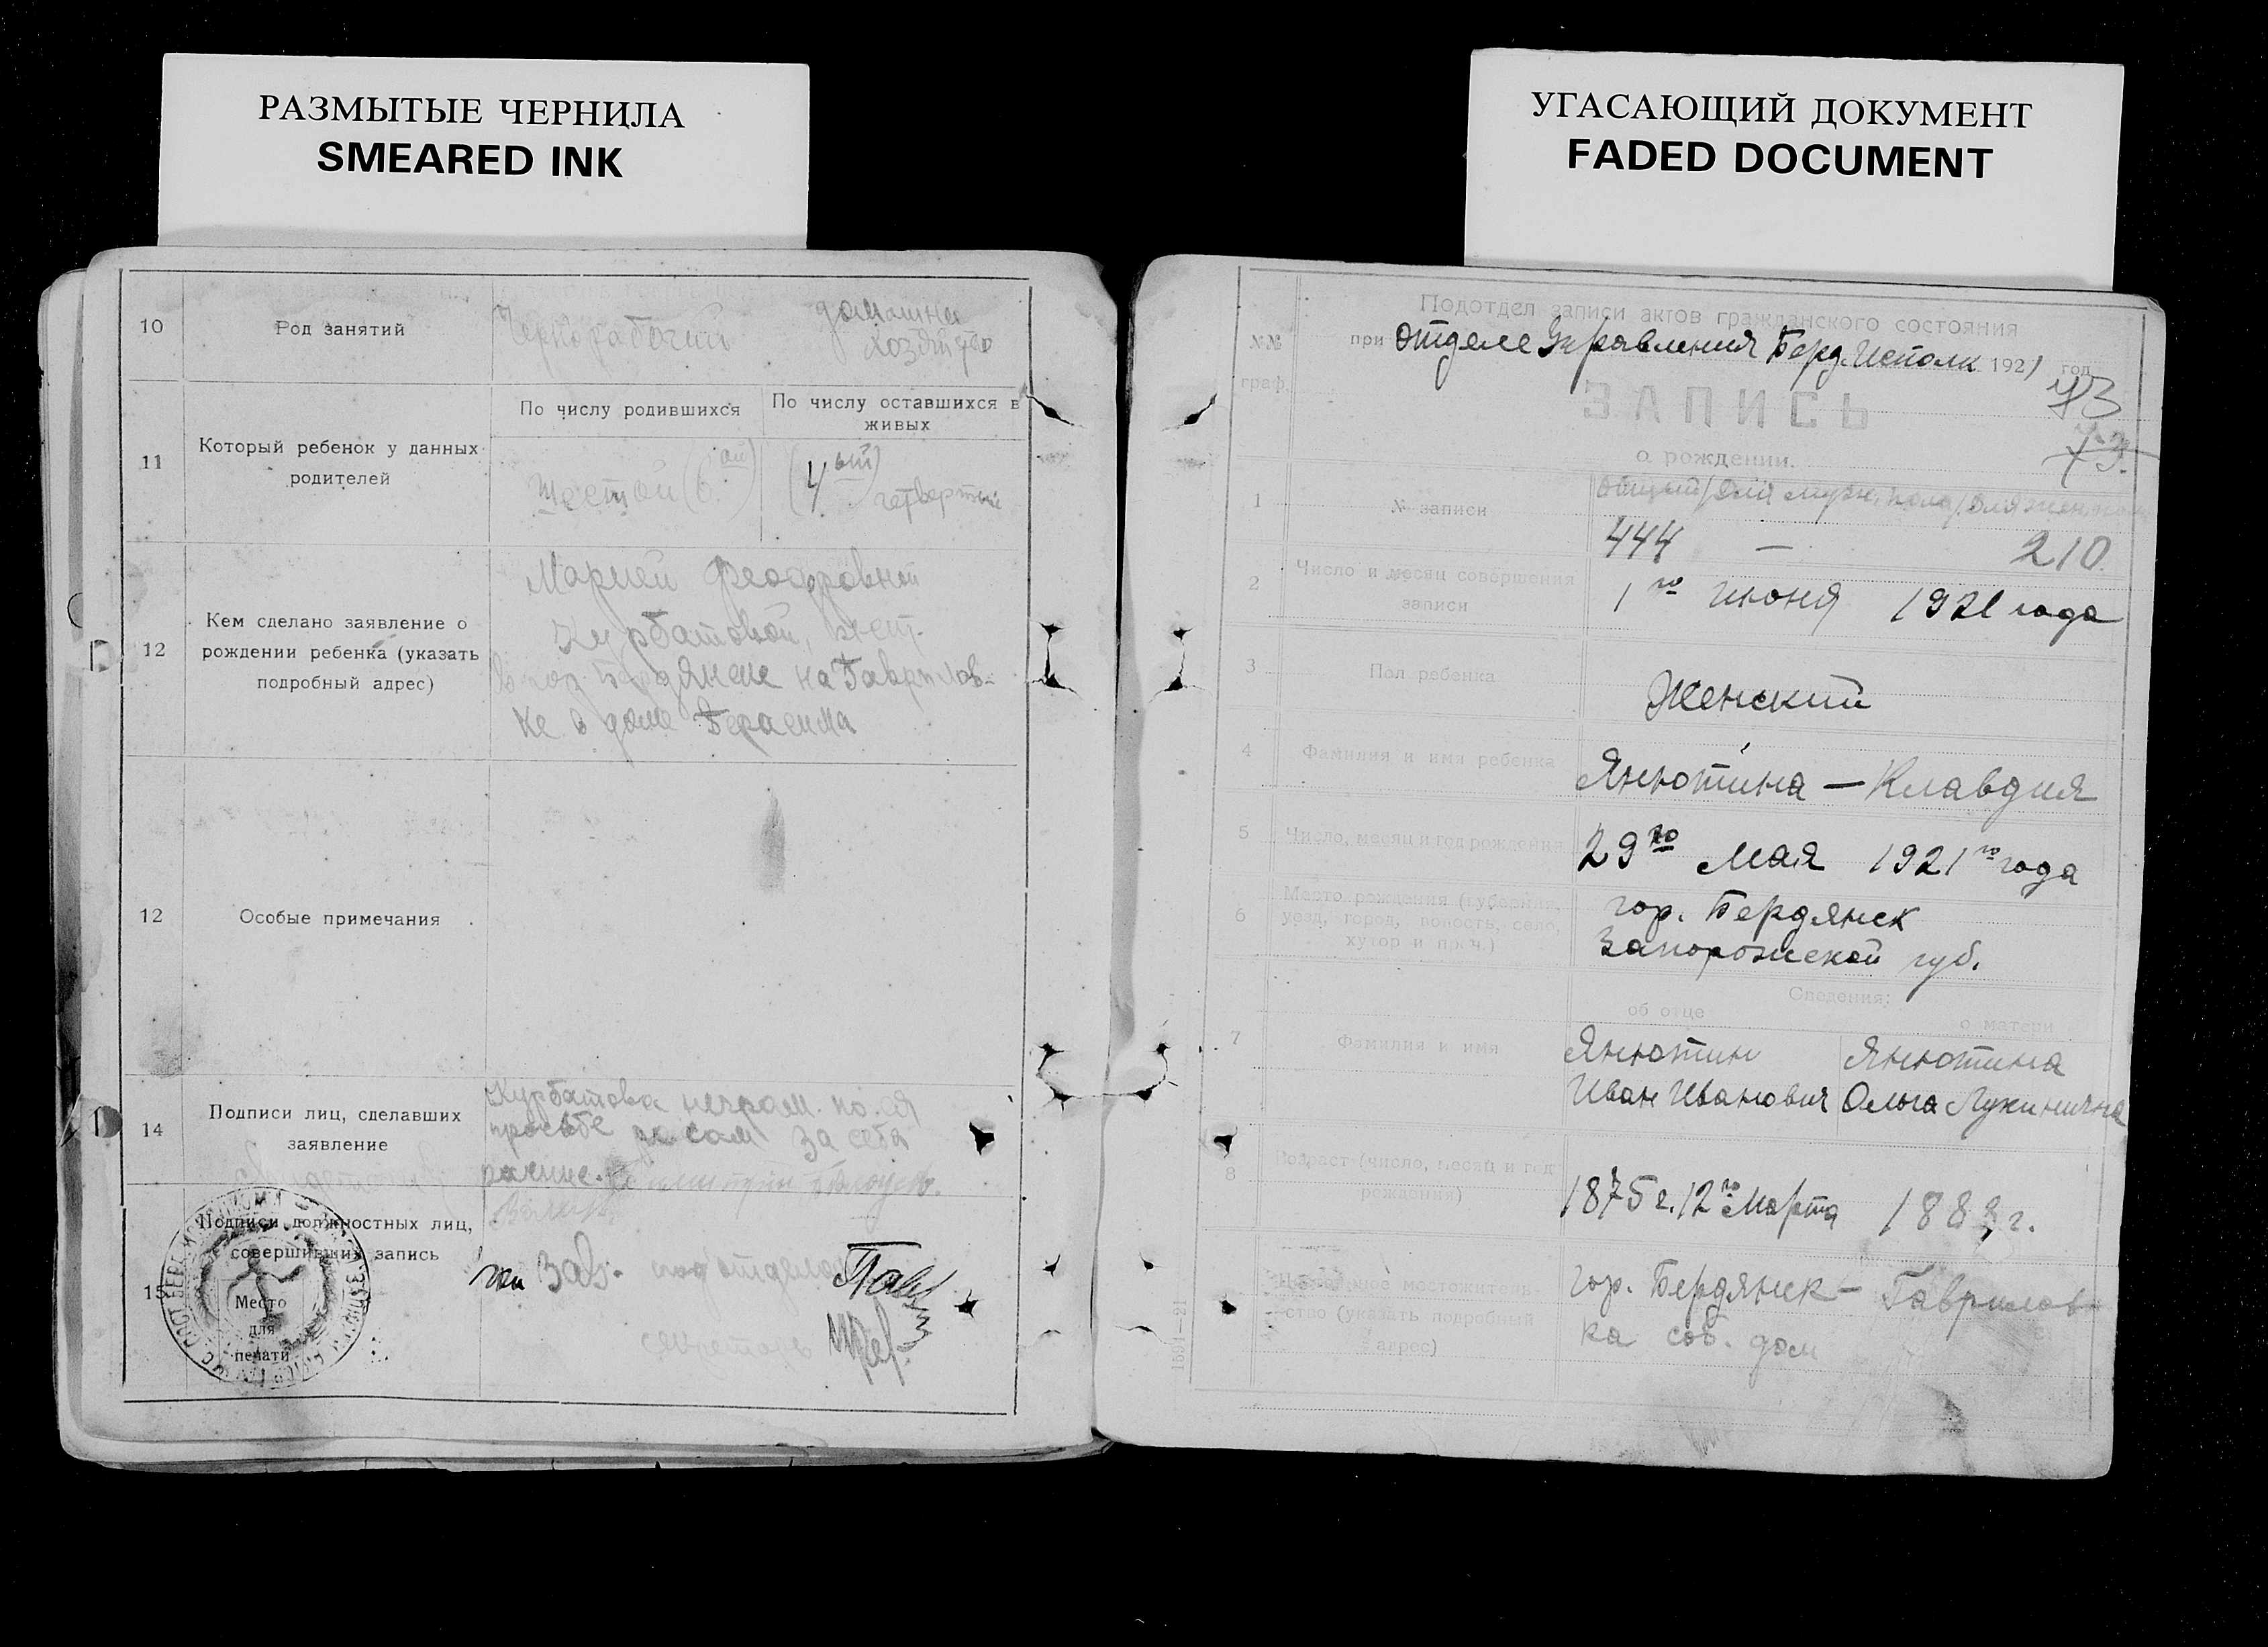 РАЗМЫТЫЕ ЧЕРНИЛА
SMEARED INK
УГАСАЮЩИЙ ДОКУМЕНТ
FADED DOCUMENT
10 Род занятий Чернорабочий домашнее хозяйство
По числу родившихся По числу оставшихся в живых
11 Который ребенок у данных
родителей
Шестой (6 ой) (4 ый) четвертый
12 Кем сделано заявление о
рождении ребенка (указать
подробный адрес)
Марией Феодоровной
Курбатовой, жит.
в гор. Бердянске на Гаврилов-
ке в доме Герасима
12 Особые примечания
14 Подписи лиц, сделавших
заявление
Курбатова неграм. по ея
просьбе за
15 Подписи должностных лиц,
совершивших запись
Место
для
печати
Зав. подотделом
секретарь
Подотдел записи актов гражданского состояния
№№ граф.
при Отделе Управления Берд. Исполк 1921 год
73
73
ЗАПИСЬ
о рождении.
1 № записи
Общий / Для муж. пола / Для жен.
444 — 210
2 Число и месяц совершения
записи
1го июня 1921 года
3 Пол ребенка Женский
4 Фамилия и имя ребенка Янютина — Клавдия
5 Число, месяц и год рождения 29го Мая 1921го года
6 Место рождения (губерния,
уезд, город, волость, село,
хутор и проч.)
гор. Бердянск
Запорожской губ.
Сведения:
об отце о матери
7 Фамилия и имя
Янютин Янютина
Иван Иванович Ольга Лукинична
8 Возраст (число, месяц и год
рождения)
1875 г. 12го Марта 1883 г.
местожитель-
ство (указать подробный
адрес)
гор. Бердянск — Гаврилов-
ка соб. дом